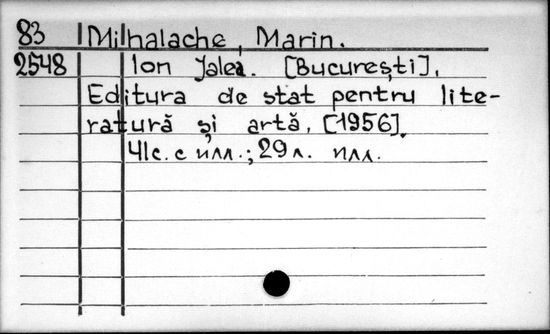 83 Mihalache, Marin.
2548 Ion Jalea. [București],
Editura de stat pentru lite-
ratură și artă, [1956].
41с. с илл.; 29л. илл.